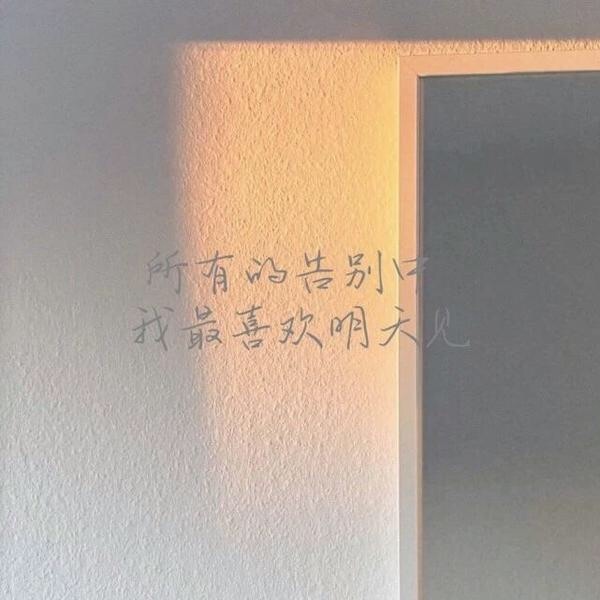 所有的告别中
我最喜欢明天见